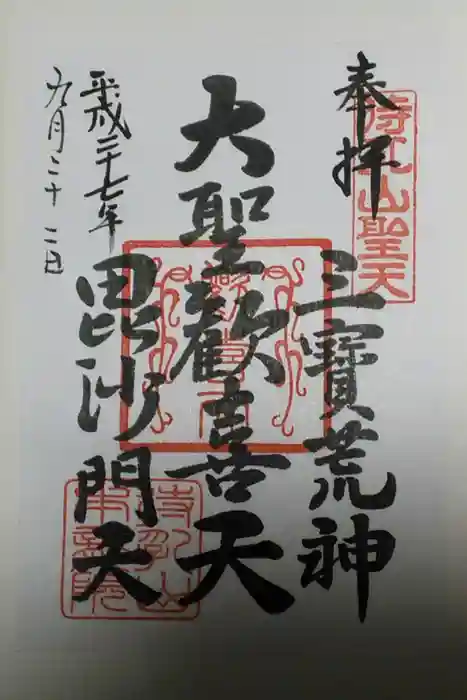 奉拝
待乳山聖天
三寳荒神
大聖歡喜天
毘沙門天
平成二十七年
九月二十二日
待乳山
本龍院